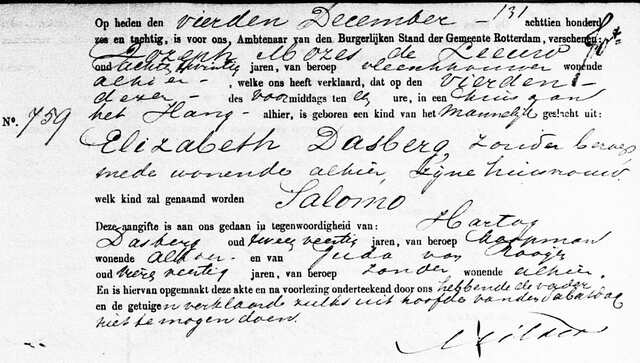 Op heden den vierden December – 131 achttien honderd
zes en tachtig, is voor ons, Ambtenaar van den Burgerlijken Stand der Gemeente Rotterdam, verschenen:
Joseph Mozes de Leeuw
oud achtentwintig jaren, van beroep vleeschhouwer wonende
alhier – , welke ons heeft verklaard, dat op den vierden –
dezer – des voormiddags ten elf ure, in een huis aan
No. 759 het Hang – alhier, is geboren een kind van het Mannelijk geslacht uit:
Elizabeth Dasberg, zonder beroep
mede wonende alhier, zijne huisvrouw.
welk kind zal genaamd worden Salomo
Deze aangifte is aan ons gedaan in tegenwoordigheid van: Hartog
Dasberg oud twee veertig jaren, van beroep koopman
wonende alhier – en van Juda van
oud vierg veertig jaren, van beroep zonder wonende alhier.
En is hiervan opgemaakt deze akte en na voorlezing onderteekend door ons hebbende de vader
en de getuigen verklaard zulks uit hoofde van den sabbatdag
niet te mogen doen.